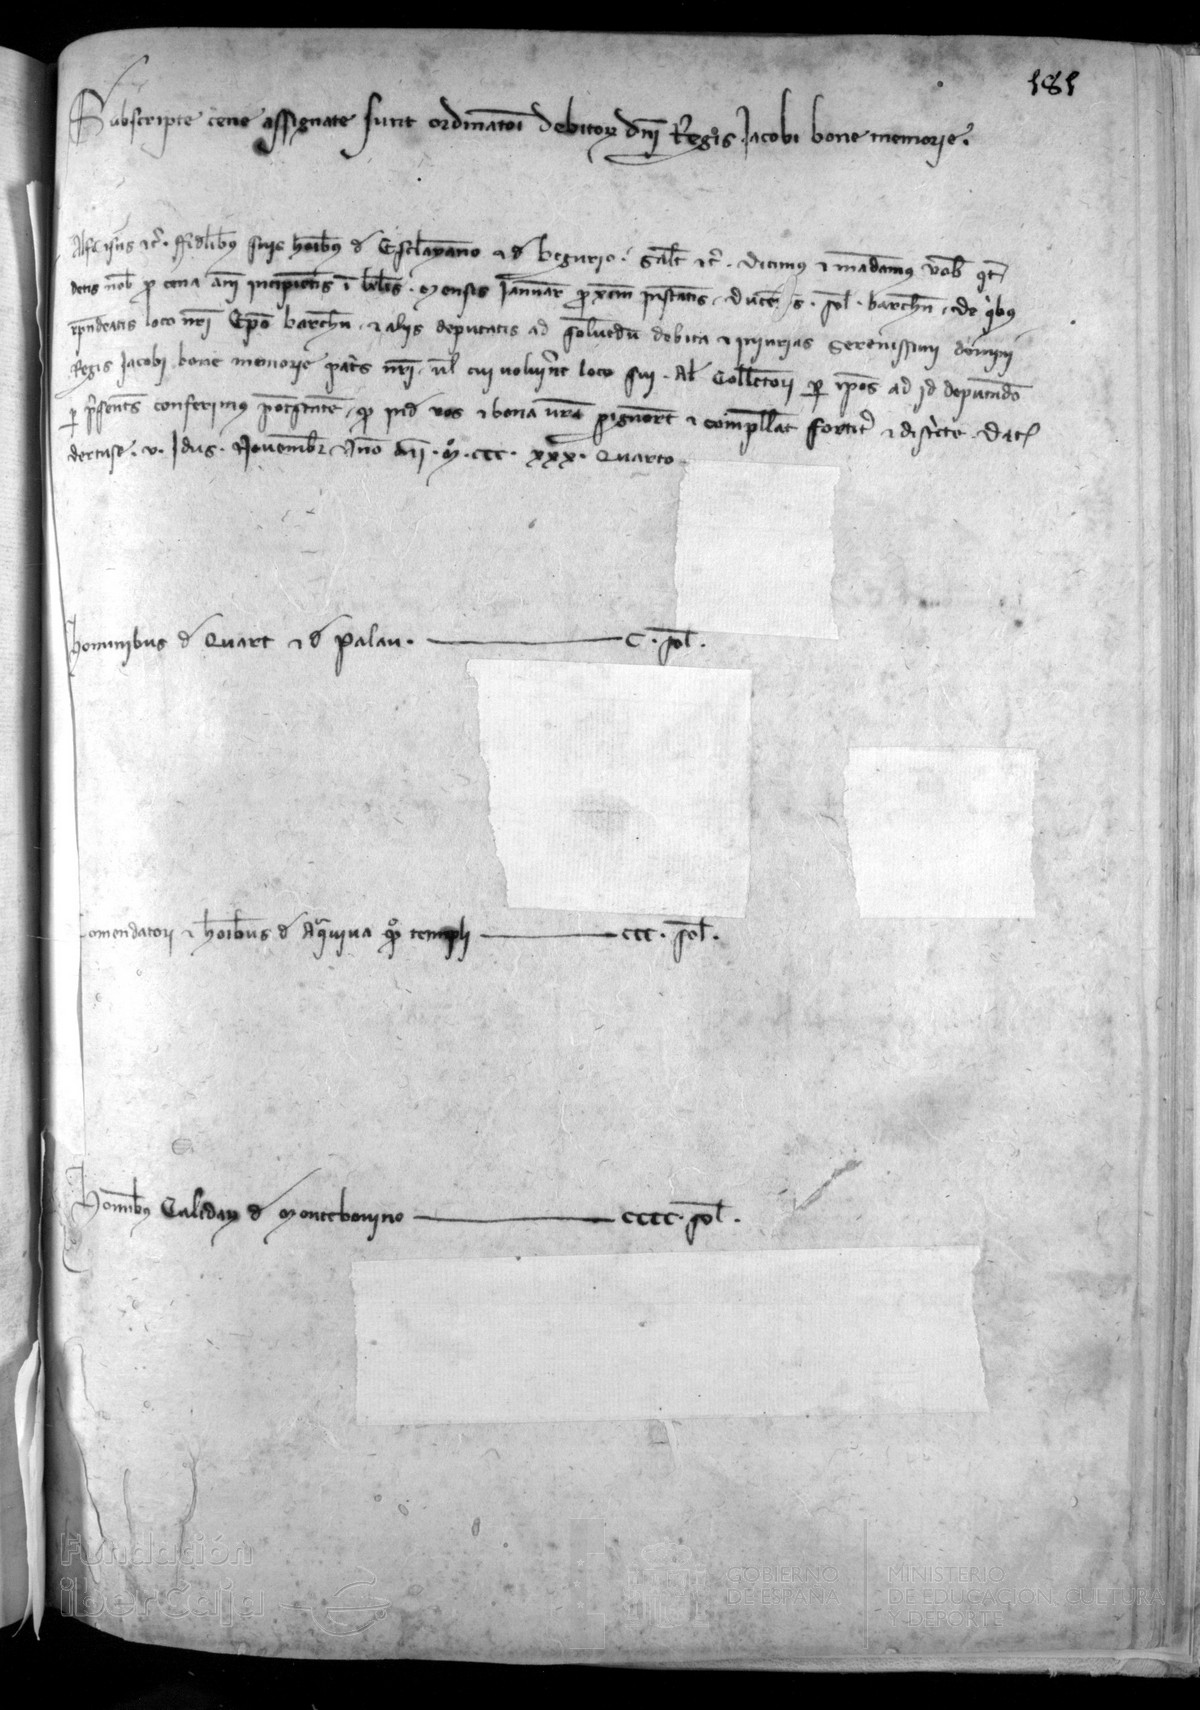 181
Subscripte cene assignate sunt ordinatori debitor dni Regis Jacobi bone memorie.
Alfonsus etc. Fidelibus suis hoibus de Esclanyano et de Begurio. Salt etc. Dicimus et mandamus vob qt
detis nob pro cena anni incipientis in kls mensis Januar prxim instantis ducentos sol barchn de qibus
rpndeatis loco nri Epo barchn et aliis deputatis ad solvendum debita et iniurias Serenissimi domini
Regis Jacobi bone memorie patris nri vel cui voluint loco sui Collectori per ipos ad id deputando
per psentes conferimus potestatem qd vos et bona vra pignoret et compellat fortit et districte Dat
dertuse v Idus Novembr Anno dni M ccc xxx Quarto
hominibus de Quart et de Palau. C. sol.
Comendatori et hoibus de Aqaviva qo templi ccc. sol.
Hominibus Calidar de Montebovino cccc. sol.
Fundación
iberCaja
GOBIERNO
DE ESPAÑA
MINISTERIO
DE EDUCACIÓN, CULTURA
Y DEPORTE